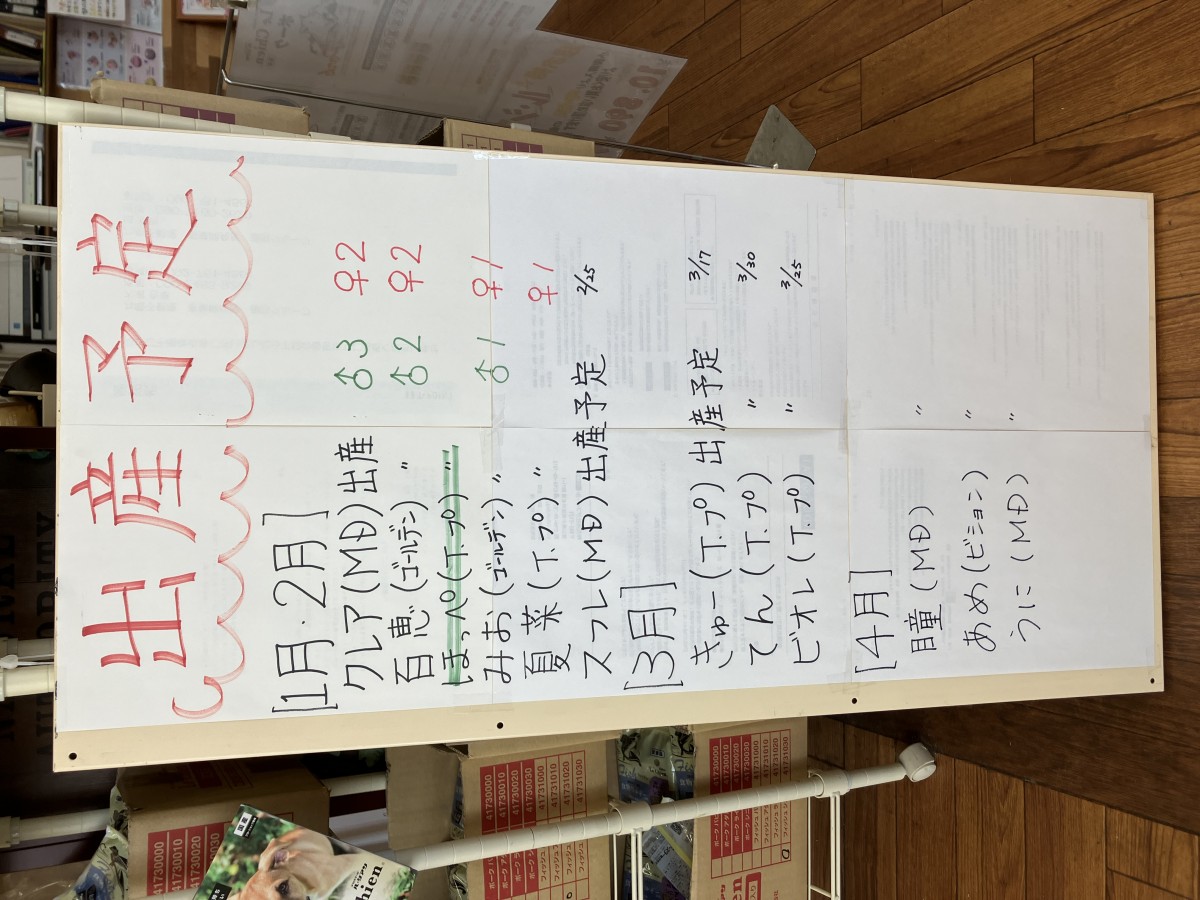 出産予定
[1月・2月]
クレア(MD)出産 ♂3 ♀2
百恵(ゴールデン) 〃 ♂2 ♀2
ほっぺ(T.プ) 〃
みお(ゴールデン) 〃 ♂1 ♀1
夏菜(T.プ) 〃 ♀1
スフレ(MD)出産予定 2/25
[3月]
きゅー(T.プ)出産予定 3/17
てん(T.プ) 〃 3/30
ビオレ(T.プ) 〃 3/25
[4月]
瞳(MD) 〃
あめ(ビション) 〃
うに(MD) 〃
41730000
41730010
41730020
41730030
41731000
41731010
41731020
41731030
国産